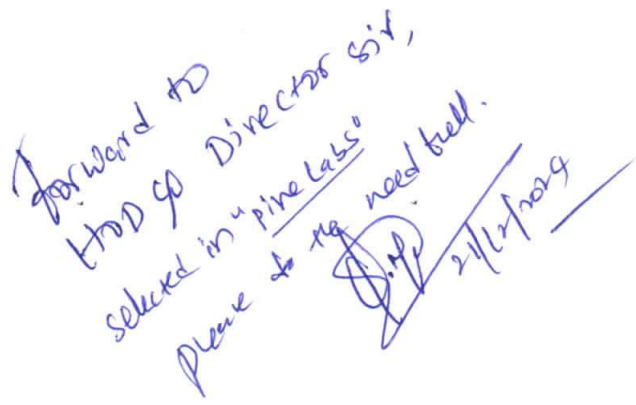 Forward to
HOD & Director sir,
selected in "pine Labs"
please do the need full.
21/12/2024